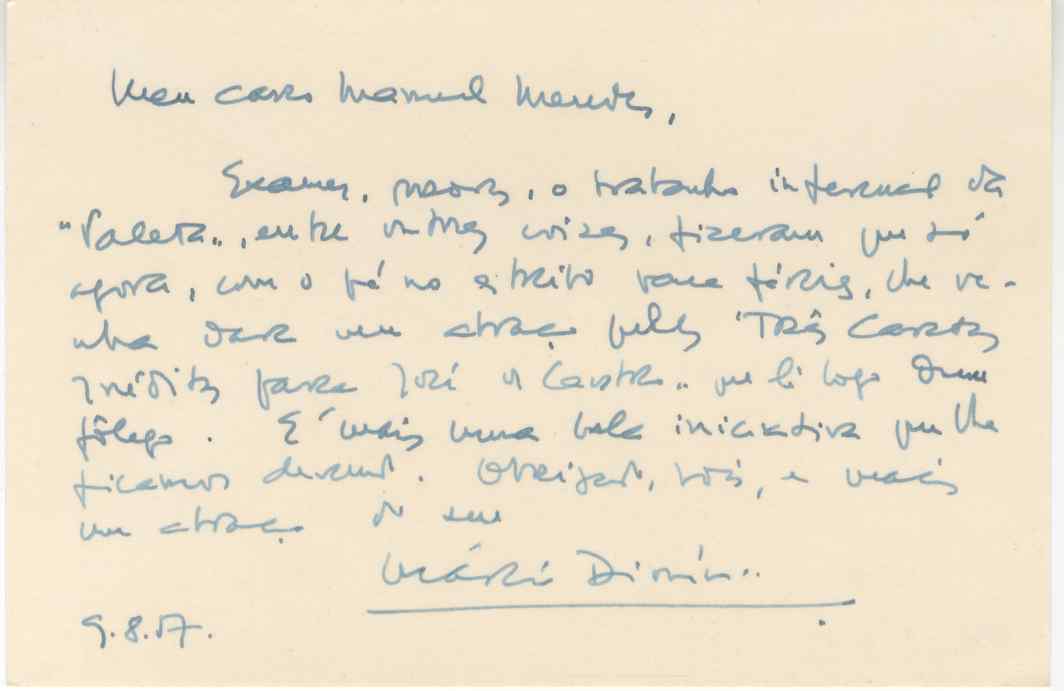 Meu caro Manuel Mendes,
Exames, provas, o trabalho infernal da
"Paleta", entre outras coisas, fizeram que só
agora, com o pé no estribo para férias, lhe ve-
nha dar um abraço pelas "Três Cartas
Inéditas para José de Castro" que li logo dum
fôlego. É mais uma bela iniciativa que lhe
ficamos devendo. Obrigado, pois, e mais
um abraço do seu
Mário Dionísio.
9.8.57.